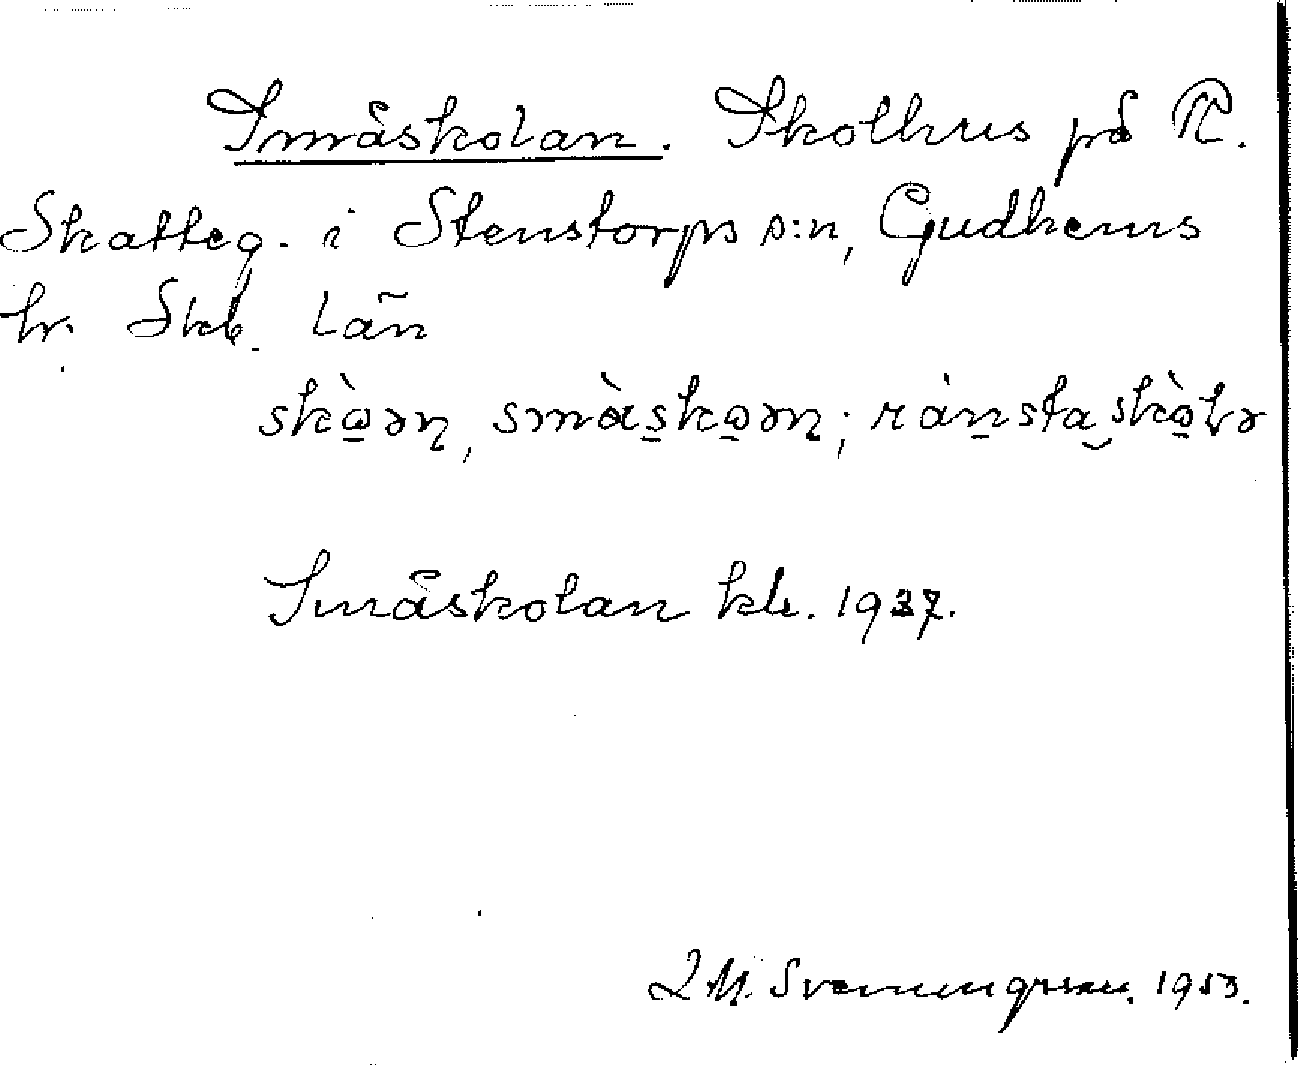 Småskolan. Skolhus på R.
Skatteg. i Stenstorps s:n, Gudhems
hr. Skb. län
skòən, smàskoən; ránsta skòlə
Småskolan kk. 1937.
1953.